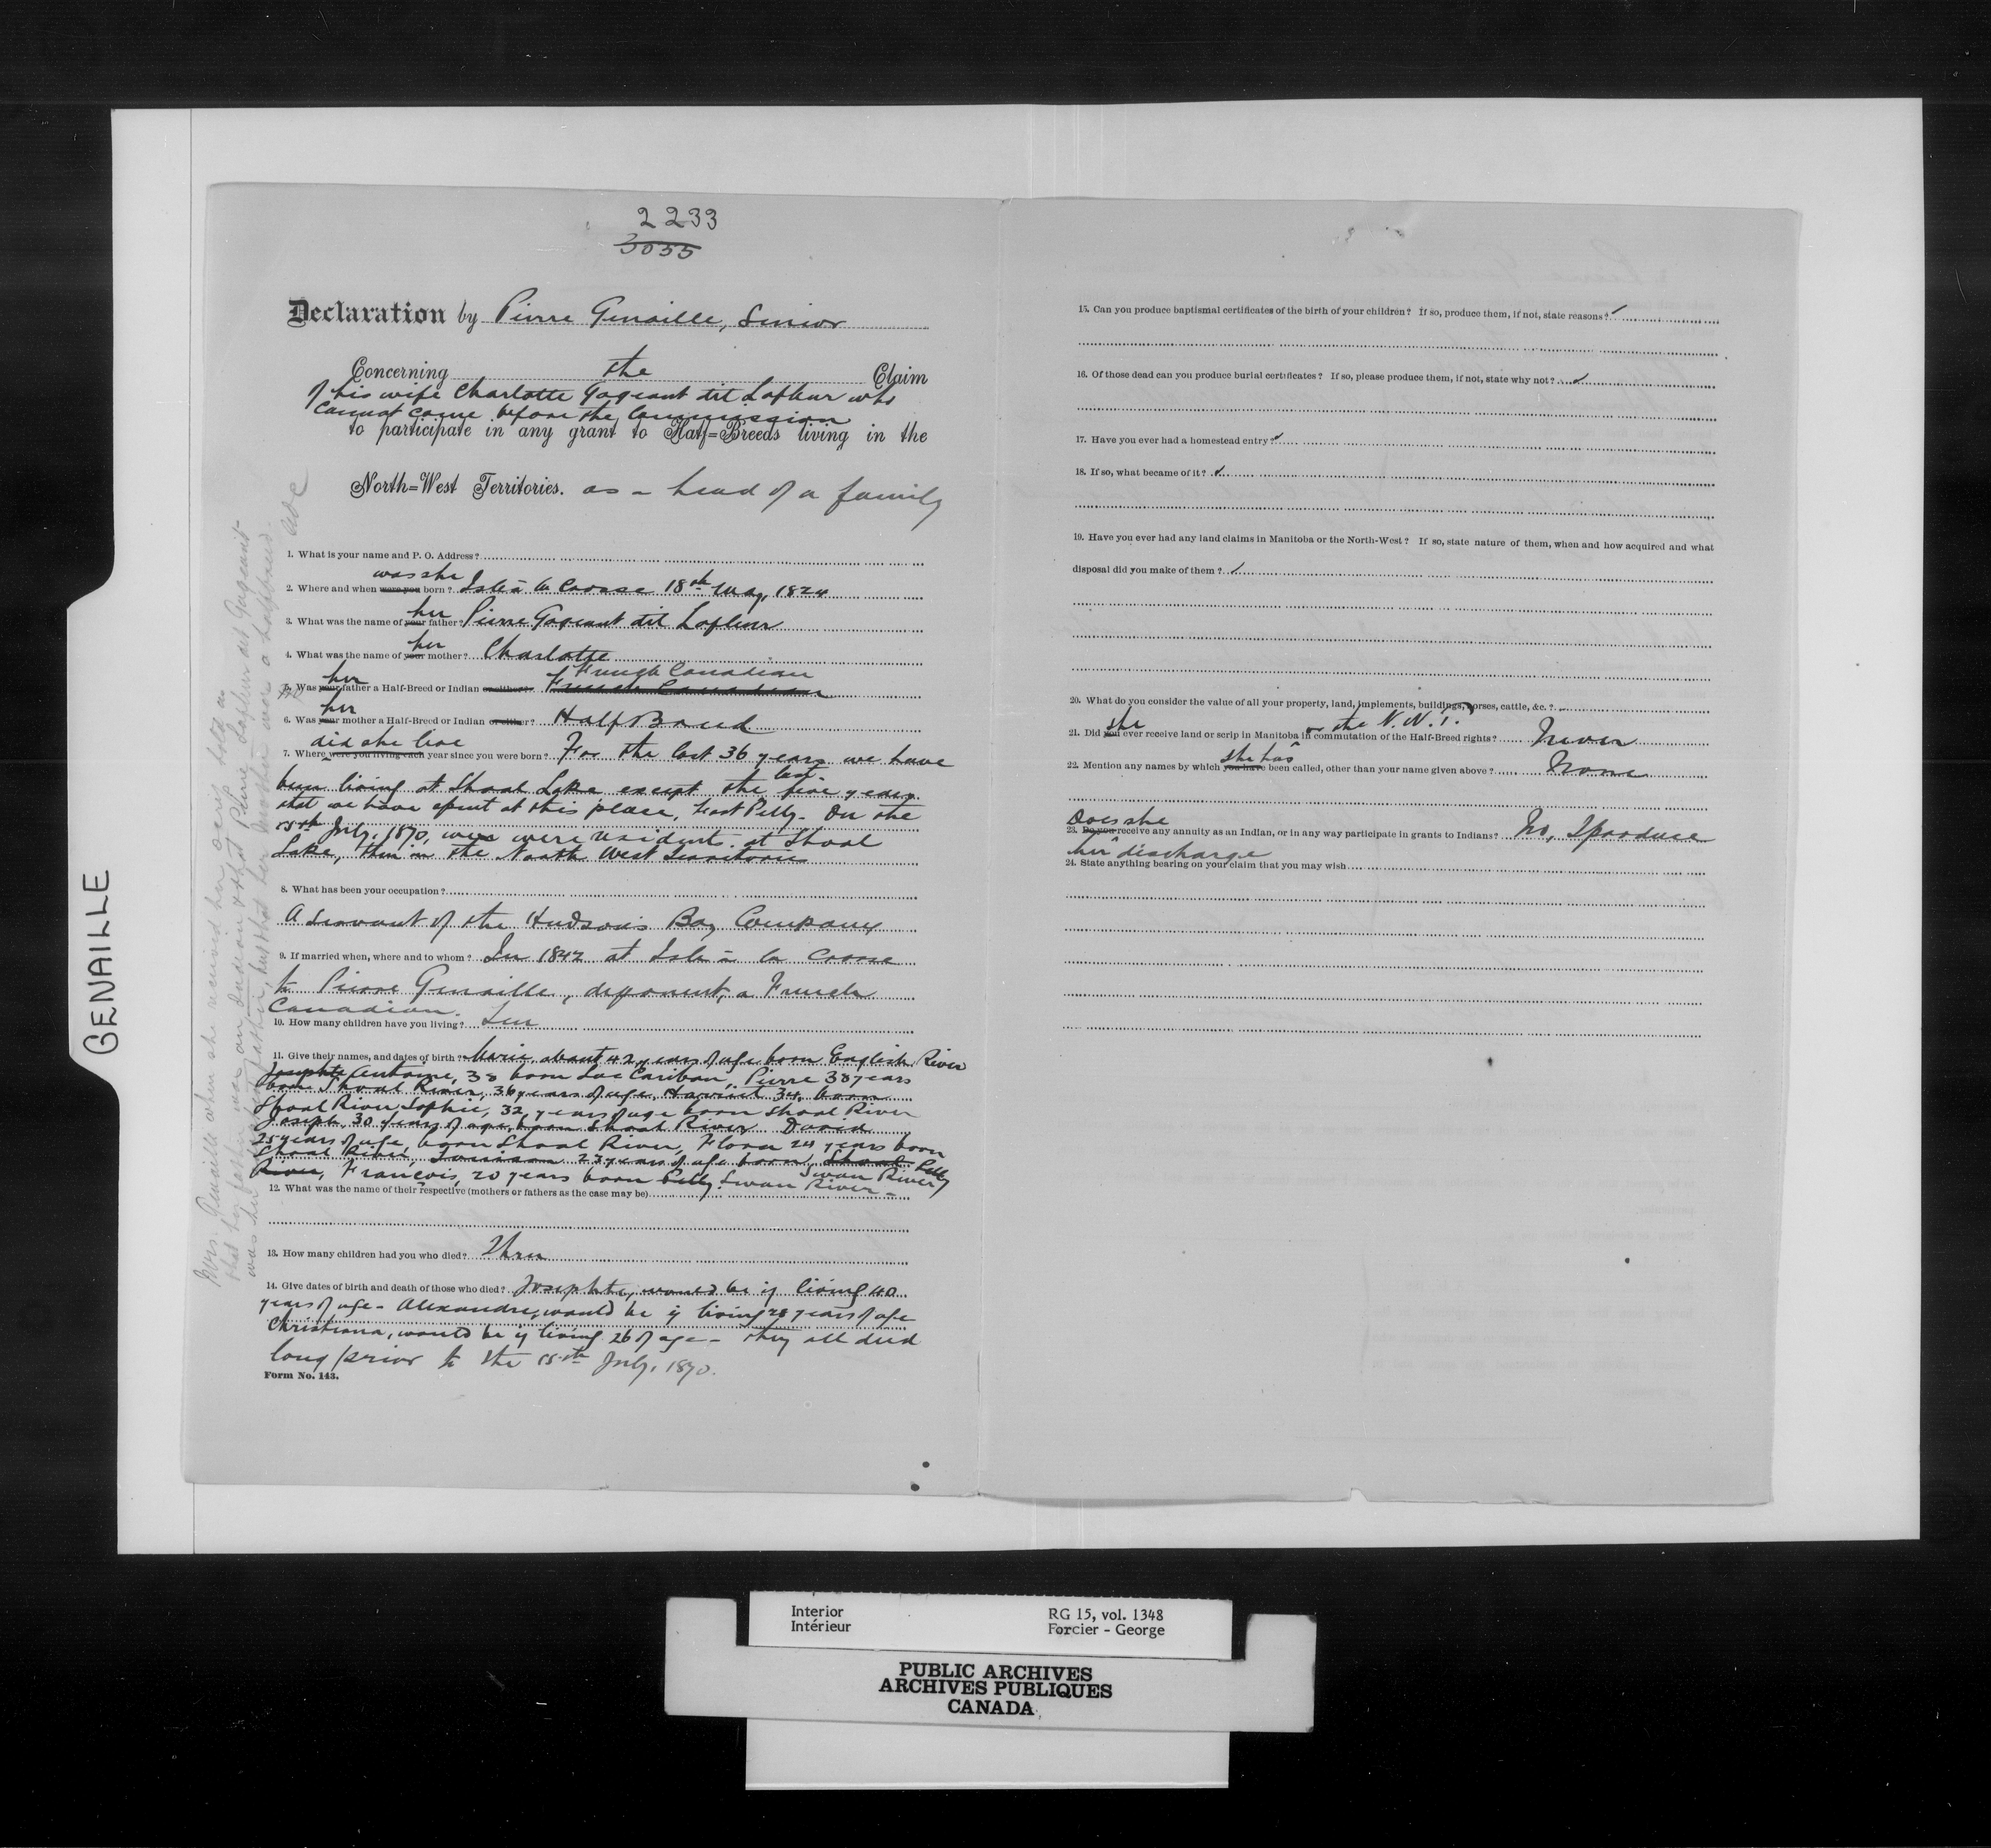 GENAILLE
2233
3055
Declaration by Pierre Genaille, Senior
Concerning the Claim
of his wife Charlotte Gageant dit Lafleur who
cannot come before the Commission
to participate in any grant to Half=Breeds living in the
North=West Territories. as a head of a family
1. What is your name and P. O. Address?
was she
2. Where and when were you born? Isle à la Crosse 18th May, 1824
her
3. What was the name of your father? Pierre Gageant dit Lafleur
her
4. What was the name of your mother? Charlotte
French Canadian
her
5. Was your father a Half-Breed or Indian or either? French Canadian
her
6. Was your mother a Half-Breed or Indian or either? Half Breed
did she live
7. Where were you living each year since you were born? For the last 36 years we have
been living at Shoal Lake except the last five years
that we have spent at this place, Fort Pelly. On the
15th July, 1870, we were residents at Shoal
Lake, then in the North West Territories
8. What has been your occupation?
A servant of the Hudson's Bay Company
9. If married when, where and to whom? In 1842 at Isle à la Crosse
to Pierre Genaille, deponent, a French
Canadian.
10. How many children have you living? Ten
11. Give their names, and dates of birth? Marie, about 42 years of age born English River
Josephte Antoine, 38 born Lac Caribou, Pierre 38 years
born Shoal River, 36 years of age, Harriet 34, born
Shoal River, Sophie, 32 years of age born Shoal River
Joseph, 30 years of age, born Shoal River David
25 years of age, born Shoal River, Flora 24 years born
Shoal River, 23 years of age born Shoal Pelly
River, François, 20 years born Pelly Swan River Swan River
12. What was the name of their respective (mothers or fathers as the case may be)
13. How many children had you who died? Three
14. Give dates of birth and death of those who died? Josephte, would be if living 40
years of age - Alexandre, would be if living 28 years of age
Christiana, would be if living 26 of age - they all died
long prior to the 15th July, 1870.
Form No. 143.
Mrs. Genaille when she received her scrip told us
that her father was an Indian & that Pierre Lafleur dit Gageant
was her father, that her mother was a halfbreed.
15. Can you produce baptismal certificates of the birth of your children? If so, produce them, if not, state reasons?
16. Of those dead can you produce burial certificates? If so, please produce them, if not, state why not?
17. Have you ever had a homestead entry?
18. If so, what became of it?
19. Have you ever had any land claims in Manitoba or the North-West? If so, state nature of them, when and how acquired and what
disposal did you make of them?
20. What do you consider the value of all your property, land, implements, buildings, horses, cattle, &c.?
she or the N.W.T.
21. Did you ever receive land or scrip in Manitoba in commutation of the Half-Breed rights? Never
she has
22. Mention any names by which you have been called, other than your name given above? None
Does she
23. Do you receive any annuity as an Indian, or in any way participate in grants to Indians? No, I produce
her discharge
24. State anything bearing on your claim that you may wish
Interior
Intérieur
RG 15, vol. 1348
Forcier - George
PUBLIC ARCHIVES
ARCHIVES PUBLIQUES
CANADA